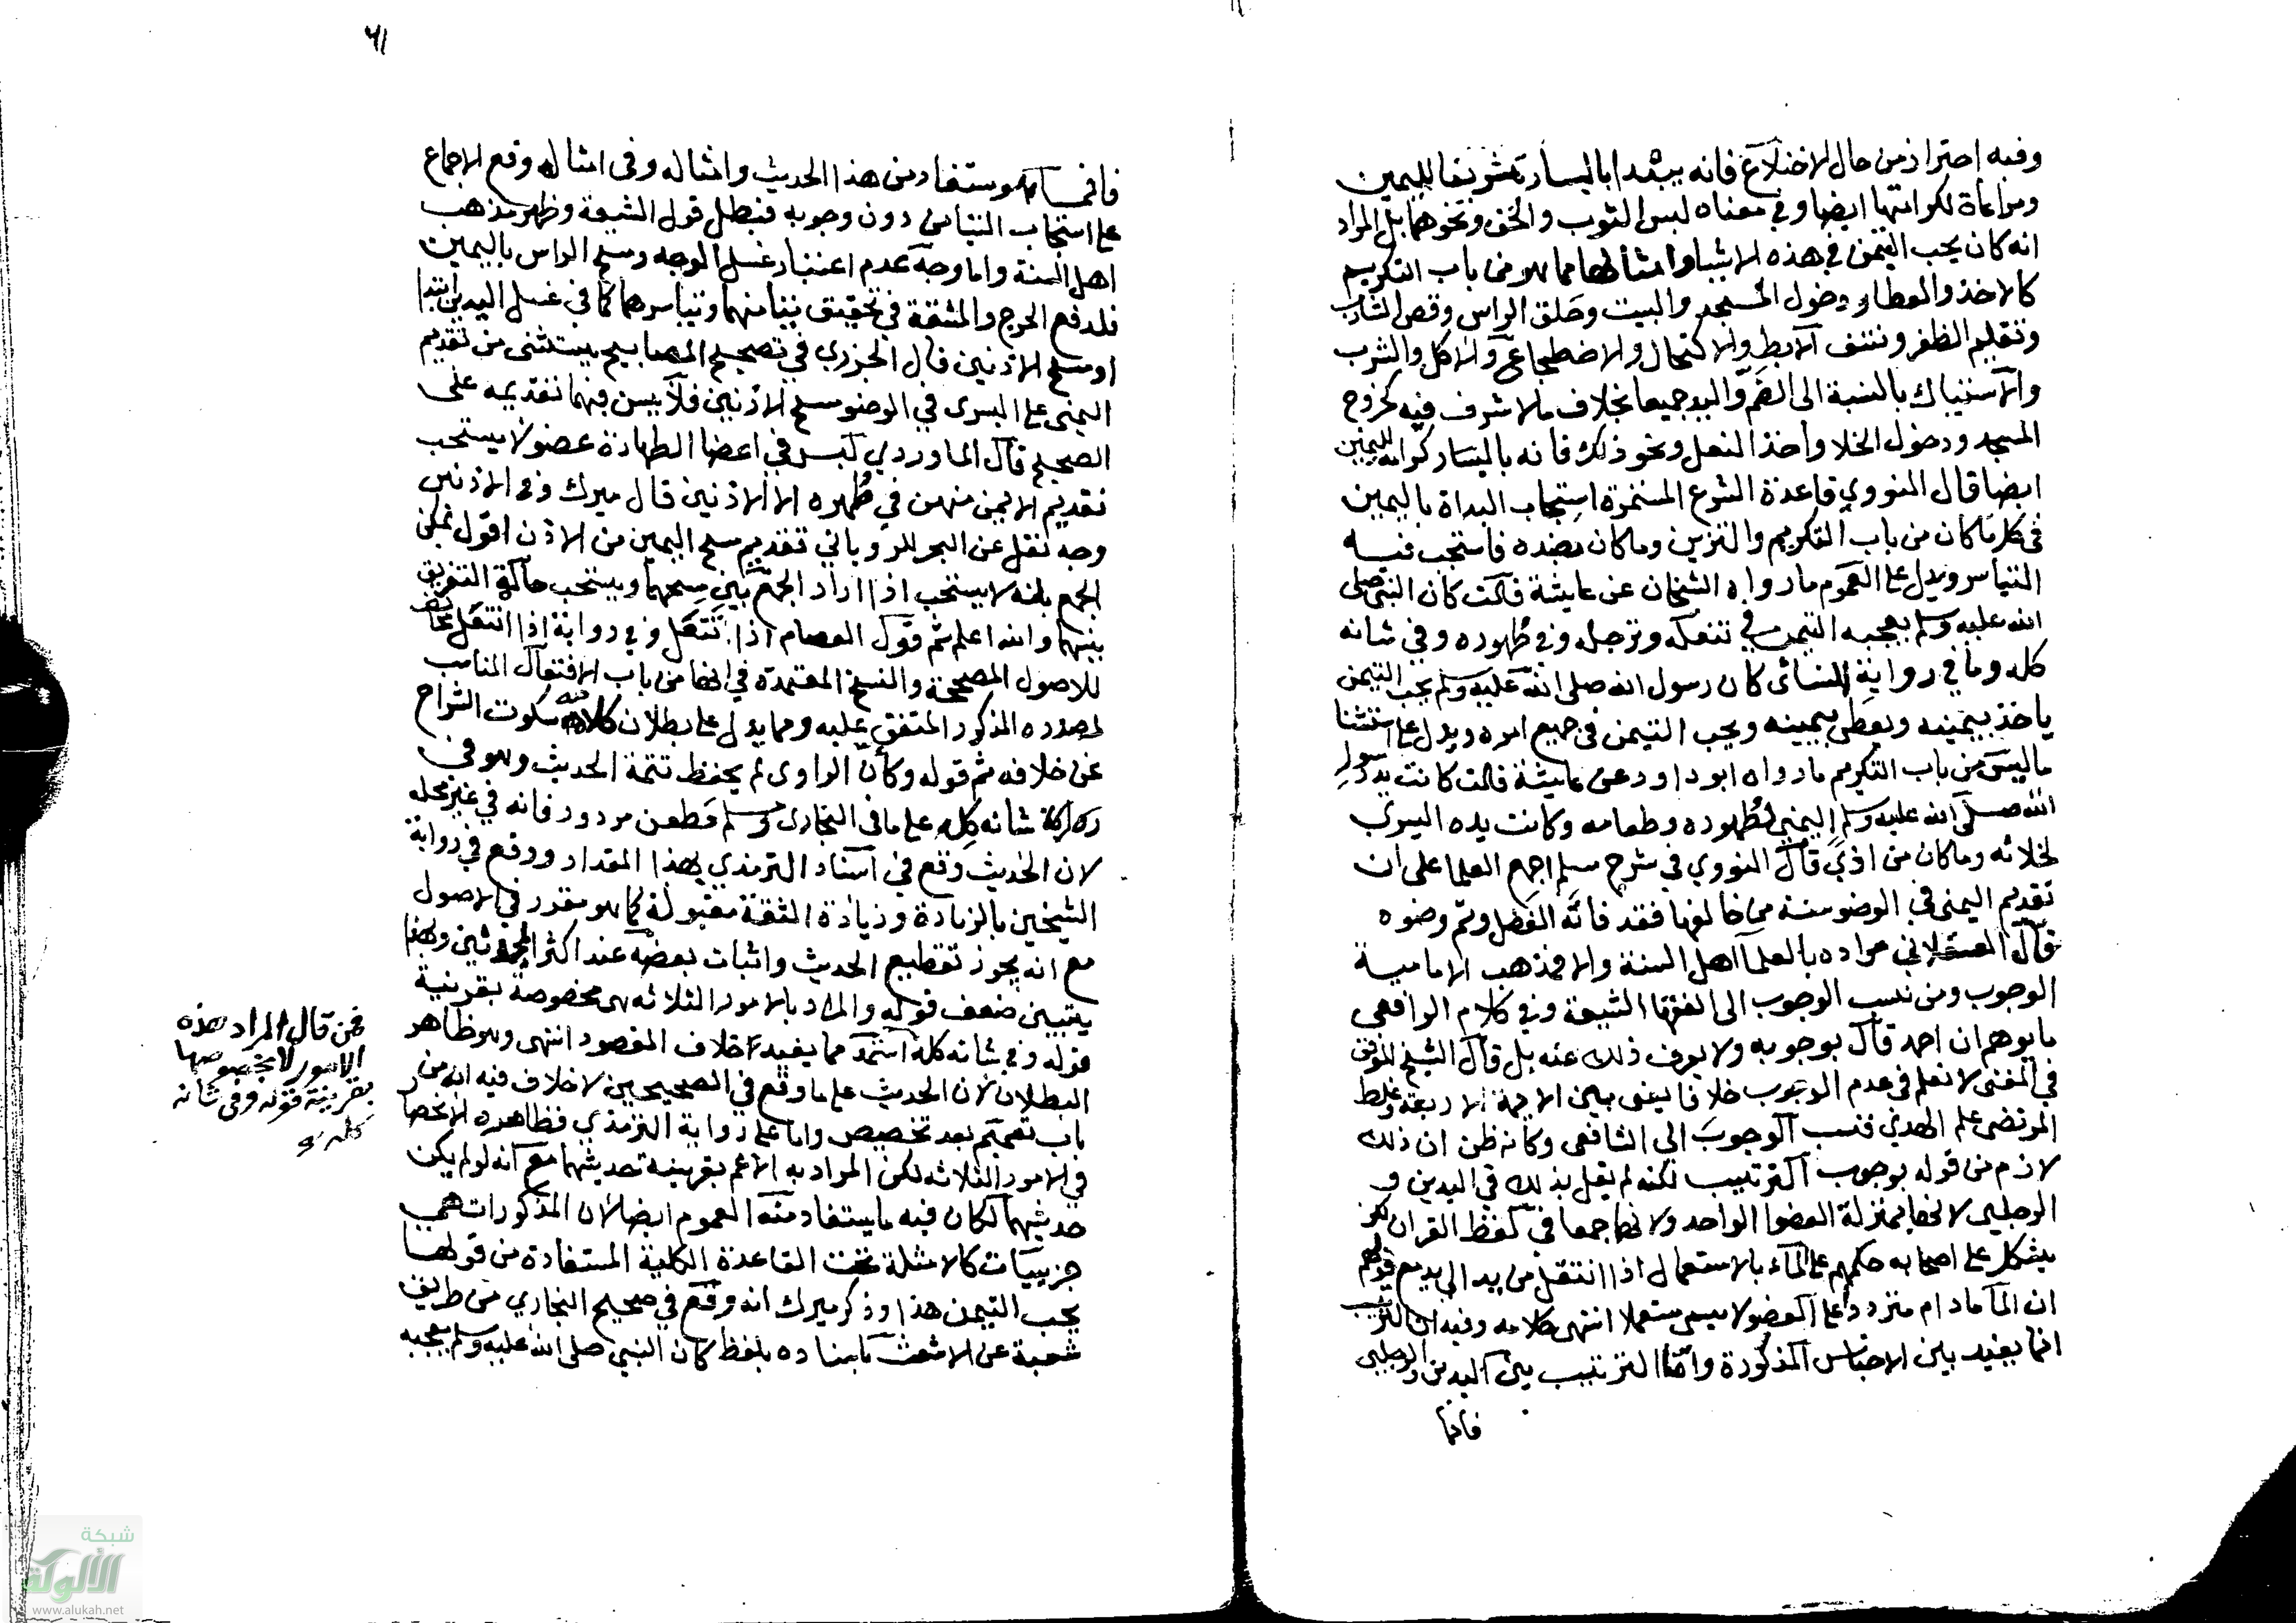 وفيه احتراز من حال الاختلاع فانه يبتدا باليسار تشريفا لليمين
ومراعاة لكرامتها ايضا وفي معناه لبس الثوب والخف ونحوهما بل المراد
انه كان يحب التيمن في هذه الاشيا وامثالها مما هو من باب التكريم
كالاخذ والعطا ودخول المسجد والبيت وحلق الراس وقص الشارب
وتقليم الظفر ونتف الابط والاكتحال والاضطجاع والاكل والشرب
والاستياك بالنسبة الى الفم واليد جميعا بخلاف ما لا شرف فيه كخروج
المسجد ودخول الخلا واخذ النعل ونحو ذلك فانه باليسار كرامة لليمين
ايضا قال النووي قاعدة الشرع المستمرة استحباب البداة باليمين
في كل ما كان من باب التكريم والتزين وما كان بضده فاستحب فيه
التياسر ويدل على العموم ما رواه الشيخان عن عايشة قالت كان النبي صلى
الله عليه وسلم يعجبه التيمن في تنعله وترجله وفي طهوره وفي شانه
كله وما في رواية النسائى كان رسول الله صلى الله عليه وسلم يحب التيمن
ياخذ بيمينه ويعطى بيمينه ويحب التيمن في جميع امره ويدل على استثنا
ما ليس من باب التكريم ما رواه ابو داود عن عايشة قالت كانت يد رسول
الله صلى الله عليه وسلم اليمنى لطهوره وطعامه وكانت يده اليسرى
لخلائه وما كان من اذي قال النووي في شرح مسلم اجمع العلما على ان
تقديم اليمنى في الوضو سنة من خالفها فقد فاته الفضل وتم وضوه
قال العسقلاني مراده بالعلما اهل السنة والا فمذهب الامامية
الوجوب ومن نسب الوجوب الى الفقها الشيعة وفي كلام الرافعى
ما يوهم ان احمد قال بوجوبه ولا يعرف ذلك عنه بل قال الشيخ الموفق
في المغنى لا نعلم في عدم الوجوب خلافا يعنى بين الايمة الاربعة وغلط
المرتضى علم الهدي فنسب الوجوب الى الشافعى وكانه ظن ان ذلك
لازم من قوله بوجوب الترتيب لكنه لم يقل بذلك في اليدين و
الرجلين لانهما بمنزلة العضو الواحد ولانهما جمعا في لفظ القران لكن
يشكل على اصحابه حكمهم على الماء بالاستعمال اذا انتقل من يد الى يد مع قولهم
ان الما مادام مترددا على العضو لا يسمى مستعملا انتهى كلامه وفيه ان الترتيب
انما يفيد بين الاجناس المذكورة واما الترتيب بين اليدين والرجلين
فانما
٦١
فانما هو مستفاد من هذا الحديث وامثاله وفى امثاله وقع الاجماع
على استحباب التيامن دون وجوبه فبطل قول الشيعة وظهر مذهب
اهل السنة واما وجه عدم اعتبار غسل الوجه ومسح الراس باليمين
فلدفع الحرج والمشقة في تحقيق تيامنهما وتياسرهما كما في غسل اليدين ابتدا
او مسح الاذنين قال الجزري في تصحيح المصابيح يستثنى من تقديم
اليمنى على اليسرى في الوضو مسح الاذنين فلا يسن فيهما تقديمه على
الصحيح قال الماوردي ليس في اعضا الطهارة عضو لا يستحب
تقديم الايمن منهن في طهره الا الاذنين قال ميرك وفي الاذنين
وجه نقل عن البحر للروياني تقديم مسح اليمين من الاذن اقول يمكن
الجمع بانه لا يستحب اذا اراد الجمع بين مسحهما ويستحب حالة التفريق
بينهما والله اعلم ثم قول العصام اذا تنعل وفي رواية اذا انتعل مخالف
للاصول المصححة والنسخ المعتمدة في انها من باب الافتعال المناسب
لمصدره المذكور المتفق عليه ومما يدل على بطلان كلامه سكوت الشراح
عن خلافه ثم قوله وكان الراوى لم يحفظ تتمة الحديث وهو في
شانه كله على ما فى البخارى ومسلم فطعن مردود فانه في غير محله
لان الحديث وقع في اسناد الترمذي بهذا المقدار ووقع في رواية
الشيخين بالزيادة وزيادة الثقة مقبولة كما هو مقرر في الاصول
مع انه يجوز تقطيع الحديث واثبات بعضه عند اكثر المحدثين وبهذا
يتبين ضعف قوله والمراد بالامور الثلاثه مخصوصة بقرينة
قوله وفي شانه كله استمد مما يفيد خلاف المقصود انتهى وهو ظاهر
البطلان لان الحديث على ما وقع في الصحيحين لا خلاف فيه انه من
باب تعميم بعد تخصيص واما على رواية الترمذي فظاهره الانحصار
في الامور الثلاثه لكن المراد به الاعم بقرينة حديثهما مع انه لو لم يكن
حديثهما لكان فيه ما يستفاد منه العموم ايضا لان المذكورات هي
جزييات كالامثلة تحت القاعدة الكلية المستفادة من قولها
يحب التيمن هذا وذكر ميرك انه وقع في صحيح البخاري من طريق
شعبة عن الاشعث باسناده بلفظ كان النبي صلى الله عليه وسلم يعجبه
فمن قال المراد هذه
الامور لا بخصوصها
بقرينة قوله وفى شانه
كله
شبكة
الألوكة
www.alukah.net